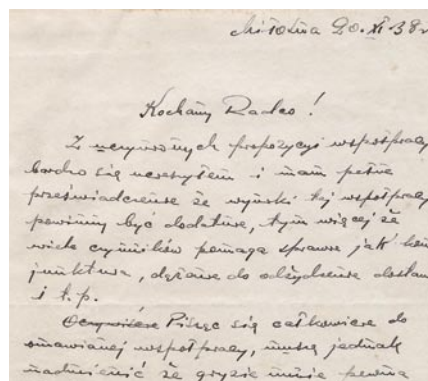 Miłosna 20.XI.38r
Kochany Radco!
Z uczynionych propozycyj współpracy
bardzo się ucieszyłem i mam pełne
przeświadczenie że wyniki tej współpracy
powinny być dodatnie, tym więcej że
wiele czynników pomaga sprawie jak kon
junktura, dążenie do odżydzenia dostaw
i t.p.
Oczywiście Pisząc się całkowicie do
omawianej współpracy, muszę jednak
nadmienić że gryzie mnie pewna